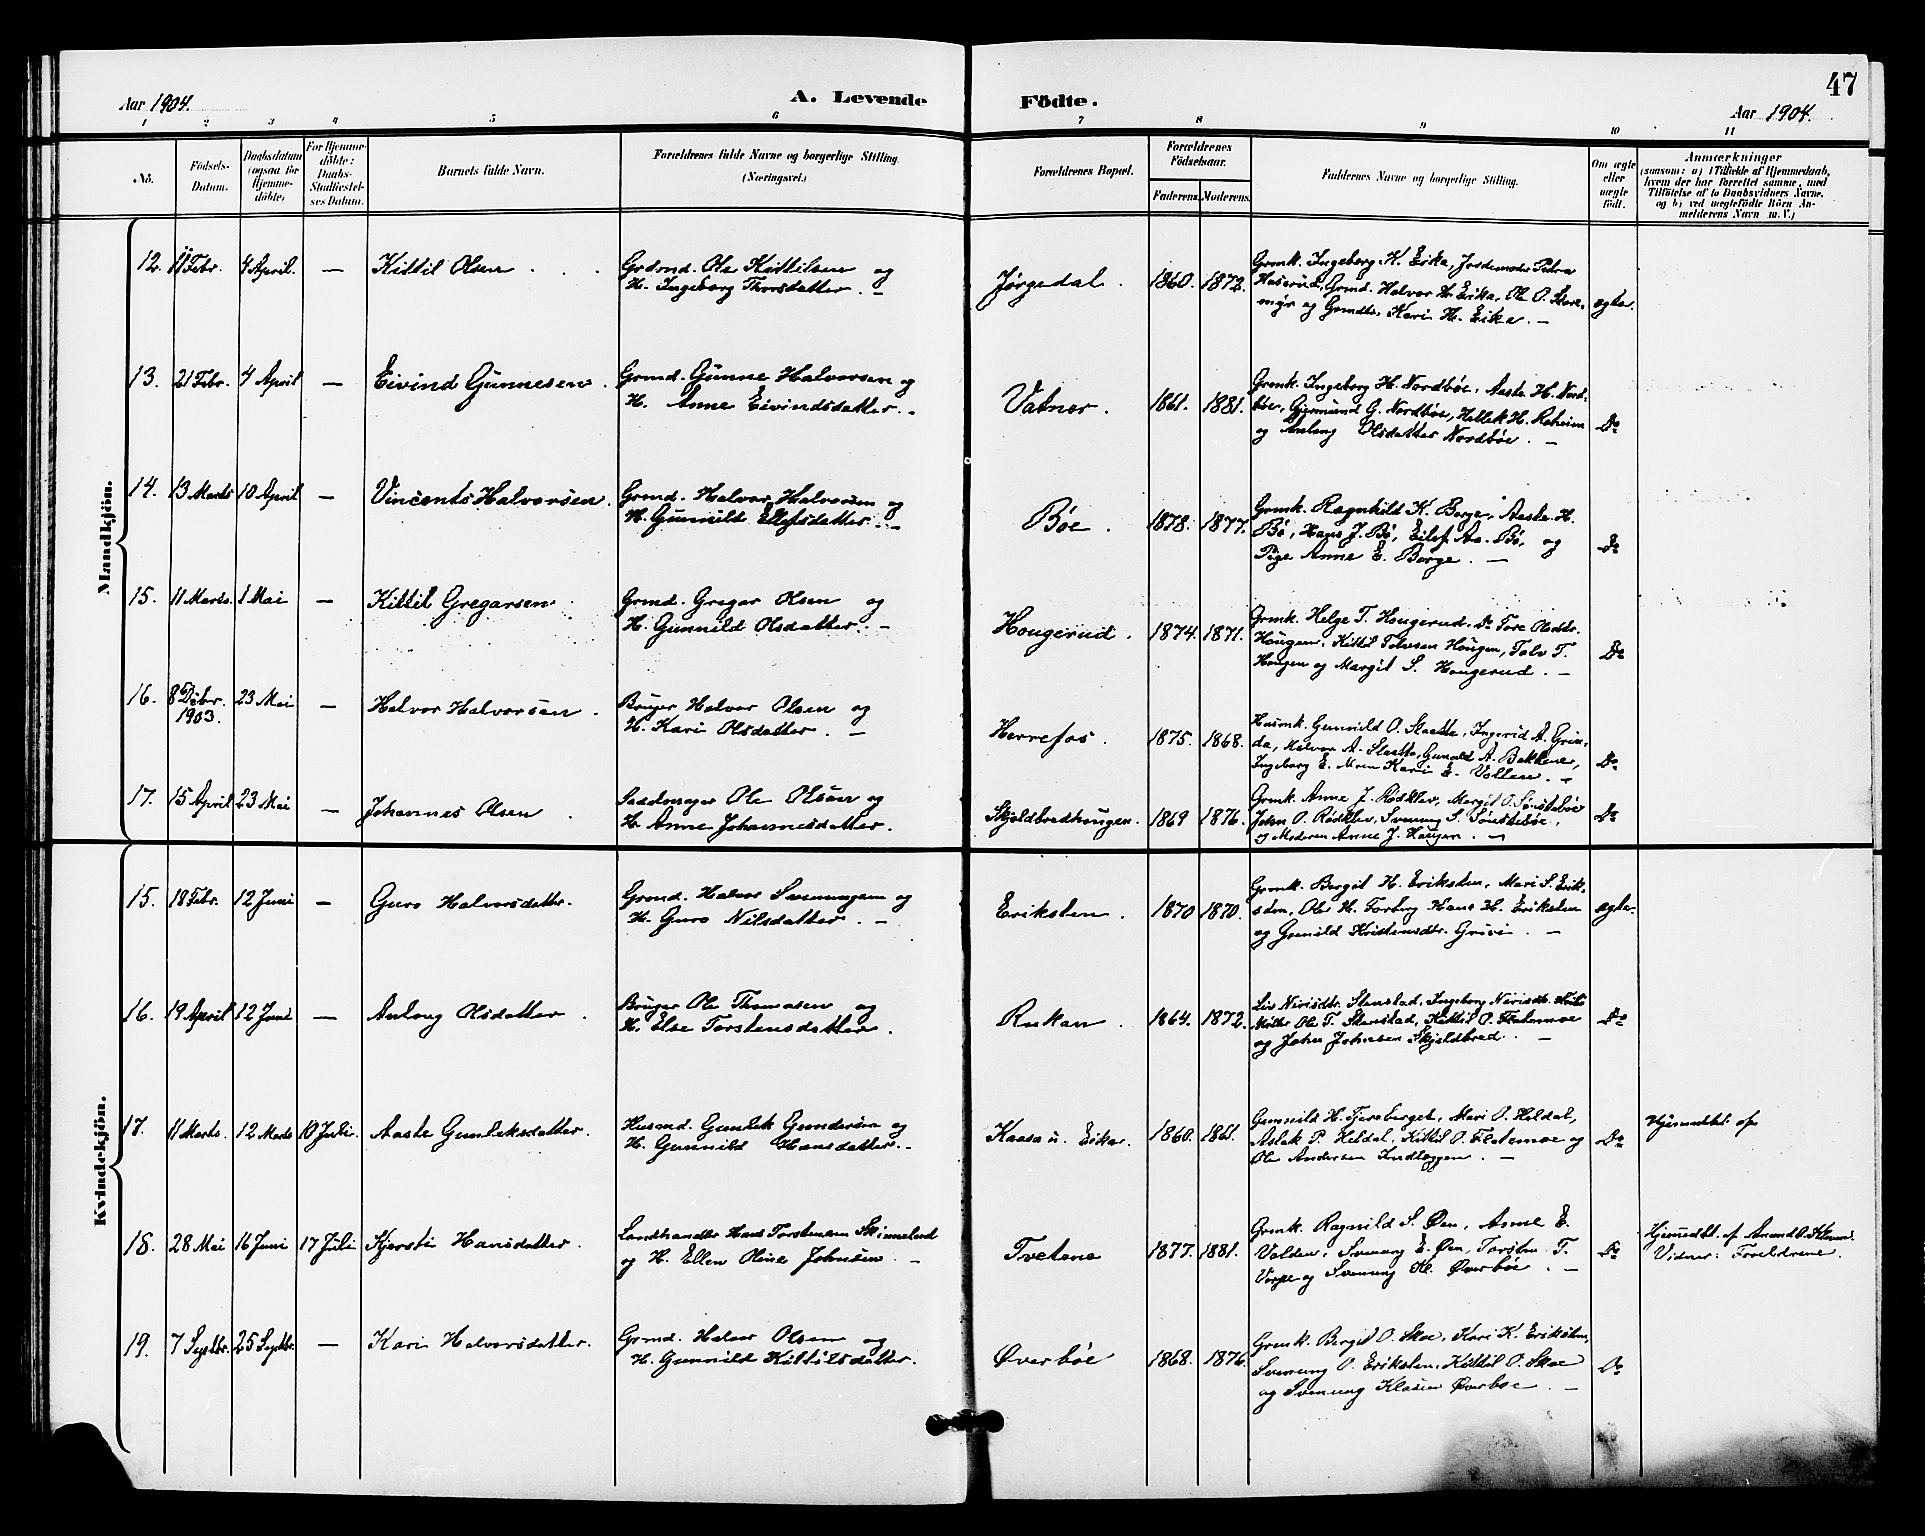 47
Aar 1904.
A. Levende
Födte.
Aar 1904.
1 2 3 4 5 6 7 8 9 10 11
No.
Födsels-
Datum.
Daabsdatum
(ogsaa for
Hjemme-
döbte)
For Hjemme-
döbte:
Daabs-
Stadfæstel-
ses Datum.
Barnets fulde Navn.
Forældrenes fulde Navne og borgerlige Stilling.
(Næringsvei.)
Forældrenes Bopæl.
Forældrenes
Födselsaar.
Faderens. Moderens.
Faddernes Navne og borgerlige Stilling.
Om ægte
eller
uægte
født.
Anmærkninger
(saasom: a) i Tilfælde af Hjemmedaab,
hvem der har forrettet samme, med
Tilföielse af to Daabsvidners Navne.
og b) ved uægtefödte Börn An-
melderens Navn m. V.)
Mandkjön.
12. 11 Febr. 4 April. — Kittil Olsen
Grdmd. Ole Kittilsen og
H. Ingeborg Thorsdatter. —
Jørgedal. 1860. 1872.
Grmk. Ingeborg K. Eika, Jordemoder Petra
Haserud, Grmd. Halvor H. Eika, Ole O. Store-
myr og Grmdtr. Kari H. Eika. —
ægte.
13. 21 Febr. 4 April — Eivind Gunnesen.
Grmd. Gunne Halvorsen og
H. Anne Eivindsdatter. -
Vatnar. 1861. 1881.
Grmk. Ingeborg H. Nordbøe, Aaste H. Nord-
bøe, Gjermund G. Nordbøe, Hellek H. Roheim
og Anlaug Olsdatter Nordbøe. —
Do
14. 13 Marts 10 April — Vincents Halvorsen.
Grmd. Halvor Halvorsen og
H. Gunnild Ellefsdatter. —
Bøe. 1878. 1877.
Grmk. Ragnhild K. Borge, Aaste H.
Bø, Hans J. Bø, Eilef Aa. Bø, og
Pige Anne E. Borge. —
Do
15. 11 Marts. 1 Mai — Kittil Gregarsen
Grmd. Gregar Olsen og
H. Gunnild Olsdatter. —
Hougerud. 1874. 1871.
Grmk. Helge T. Hougerud. Do Tore Olsdtr.
Hougen. Kittil Tolvsen Hougen, Tolv T.
Hougen og Margit S. Hougerud. —
Do
16. 8 Debr. 23 Mai — Halvor Halvorsen.
1903.
Bruger Halvor Olsen og
H. Kari Olsdatter. —
Herrefos. 1875. 1868.
Husmk. Gunnild O. Slaatta, Ingerid A. Grin-
da, Halvor A. Slaatta, Gunuld A. Bakkene,
Ingeborg E. Moen Kari E. Vollen. —
Do
17. 15 April 23 Mai — Johannes Olsen.
Sadelmager Ole Olsen og
H. Anne Johannesdatter.
Skjoldbredhougen. 1869 1876.
Grmk. Anne J. Rødklev, Margit O. Sønstebøe
John O. Rødklev, Svenung S. Sønstebøe,
og Moderen Anne J. Hougen. —
Do
Kvindekjön.
15. 18 Febr. 12 Juni — Guro Halvorsdatter.
Grmd. Halvor Svenungsen og
H. Guro Nilsdatter. —
Eriksten. 1870 1870.
Grmk. Bergit H. Eriksten, Mari S. Erik-
sten, Ole H. Forberg Hans H. Eriksten
og Gunnild Kristensdtr. Grivi. —
ægte.
16. 19 April 12 Juni — Anlaug Olsdatter.
Bruger Ole Thomasen og
H. Else Torstensdatter.
Rukan. 1864. 1872.
Liv Nirisdtr. Stenstad, Ingeborg Nirisdtr.
Ole T. Stenstad, Kittil O. Flatemoe
og John Johnsen Skjoldbred. —
Do
17. 11 Marts. 12 Marts 10 Juli. Aaste Gunleksdatter.
Husmd. Gunlek Gundersen og
H. Gunnild Hansdatter. -
Kaasa u. Eika. 1860. 1861.
Gunnild H. Tjersberget, Mari O. Heldal,
Aslak P. Heldal, Kittil O. Flatemoe og
Ole Andersen Kudlæggen. —
Do
Hjemmedbt. af
18. 28 Mai 16 Juni 17 Juli Kjersti Hansdatter.
Landhandler Hans Torstensen Skinnelund
og H. Ellen Oline Johnsen. —
Tvetene 1877. 1881.
Grmk. Ragnild S. Øen, Anne E.
Valden, Svenung E. Øen, Torsten T.
Vorpe og Svenung Kl. Øverbøe. —
Do
Hjemmedbt. af Amund O.
Vidner: Forældrene.
19. 7 Septbr. 25 Septbr. — Kari Halvorsdatter.
Grmd. Halvor Olsen og
H. Gunnild Kittilsdatter.
Øverbøe 1868. 1876.
Grmk. Bergit O. Skoe, Kari K. Eriksten,
Svenung O. Eriksten, Kittil O. Skoe
og Svenung Klasen Øverbøe. —
Do